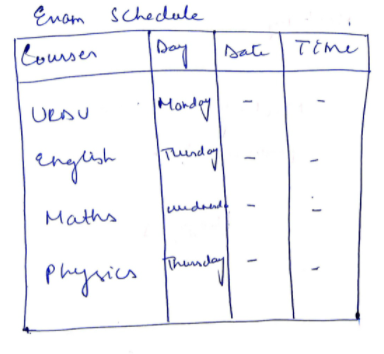 Exam Schedule
Courses Day Date Time
URDU Monday - -
English Tuesday - -
Maths Wednesd - -
Physics Thursday - -